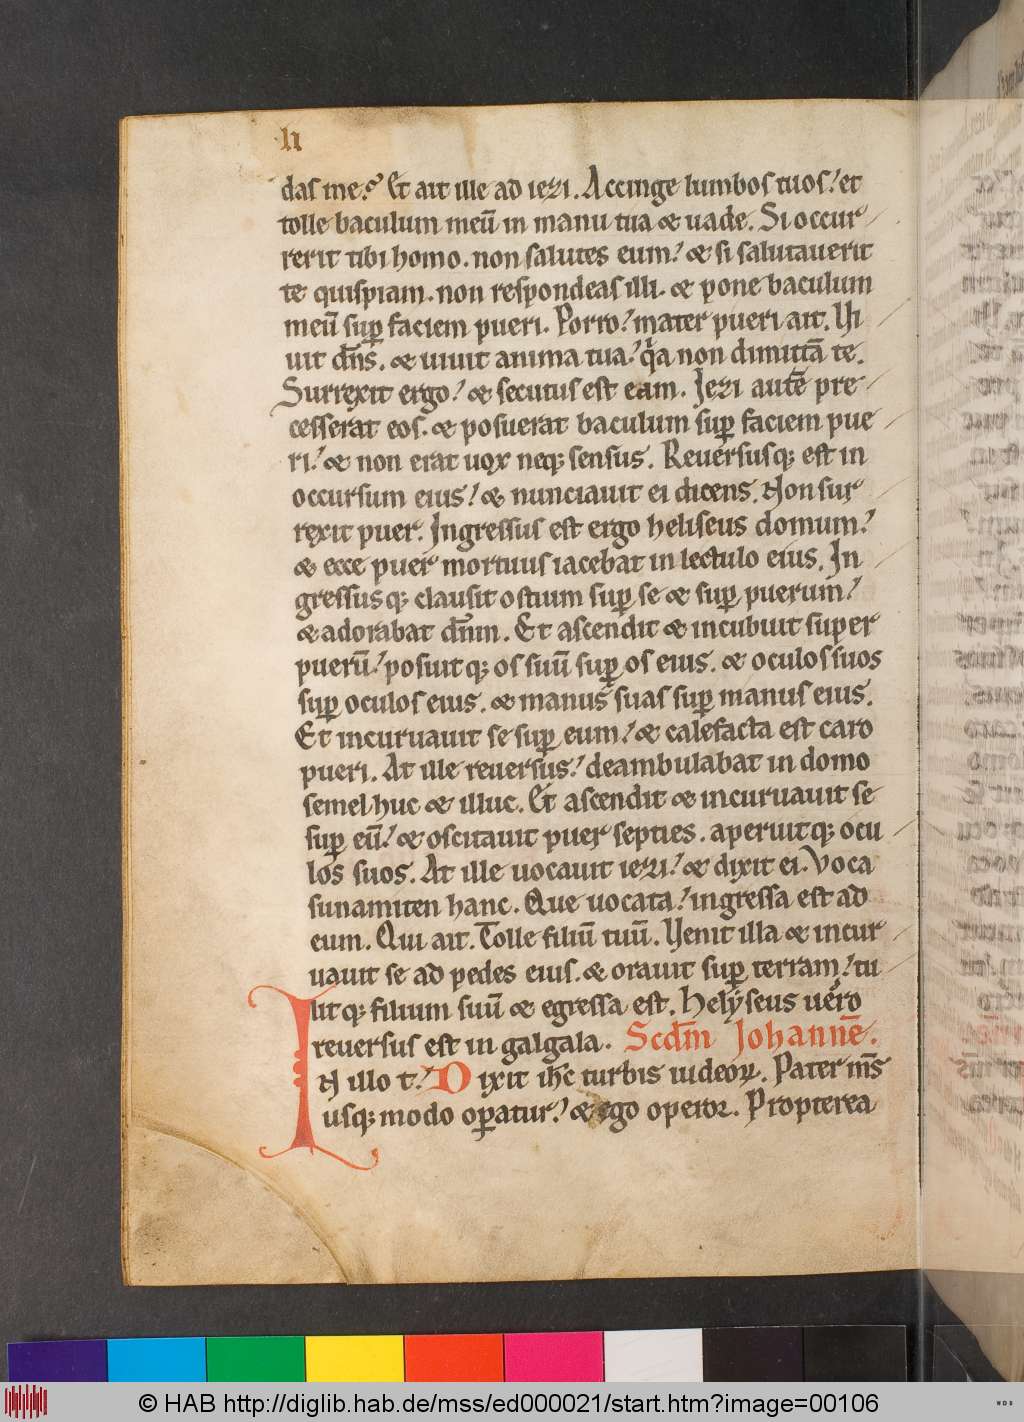 lı
das me.? Et ait ille ad iezi. Accinge lumbos tuos! et
tolle baculum meū in manu tua & uade. Si occur
rerit tibi homo. non salutes eum! & si salutauerit
te quispiam. non respondeas illi. & pone baculum
meū suꝑ faciem pueri. Porro! mater pueri ait. Ui
uit dn̄s. & uiuit anima tua! qͣa non dimittā te.
Surrexit ergo! & secutus est eam. Iezi autē pre
cesserat eos. & posuerat baculum suꝑ faciem pue
ri! & non erat uox neqꝫ sensus. Reuersusqꝫ est in
occursum eius! & nunciauit ei dicens. Non sur
rexit puer. Ingressus est ergo heliseus domum!
& ecce puer mortuus iacebat in lectulo eius. In
gressusqꝫ clausit ostium suꝑ se & suꝑ puerum!
& adorabat dn̄m. Et ascendit & incubuit super
puerū! posuitqꝫ os suū suꝑ os eius. & oculos suos
suꝑ oculos eius. & manus suas suꝑ manus eius.
Et incuruauit se suꝑ eum! & calefacta est caro
pueri. At ille reuersus! deambulabat in domo
semel huc & illuc. Et ascendit & incuruauit se
suꝑ eū! & oscitauit puer septies. aperuitqꝫ ocu
los suos. At ille uocauit iezi! & dixit ei. Voca
sunamiten hanc. Que uocata! ingressa est ad
eum. Qui ait. Tolle filiū tuū. Uenit illa & incur
uauit se ad pedes eius. & orauit suꝑ terram! tu
litqꝫ filium suū & egressa est. Helyseus uero
reuersus est in galgala. Scd̄m Iohannē.
IN illo t! Dixit ihc̄ turbis iudeoꝝ. Pater m̄s
usqꝫ modo oꝑatur! & ego operor. Propterea
© HAB http://diglib.hab.de/mss/ed000021/start.htm?image=00106